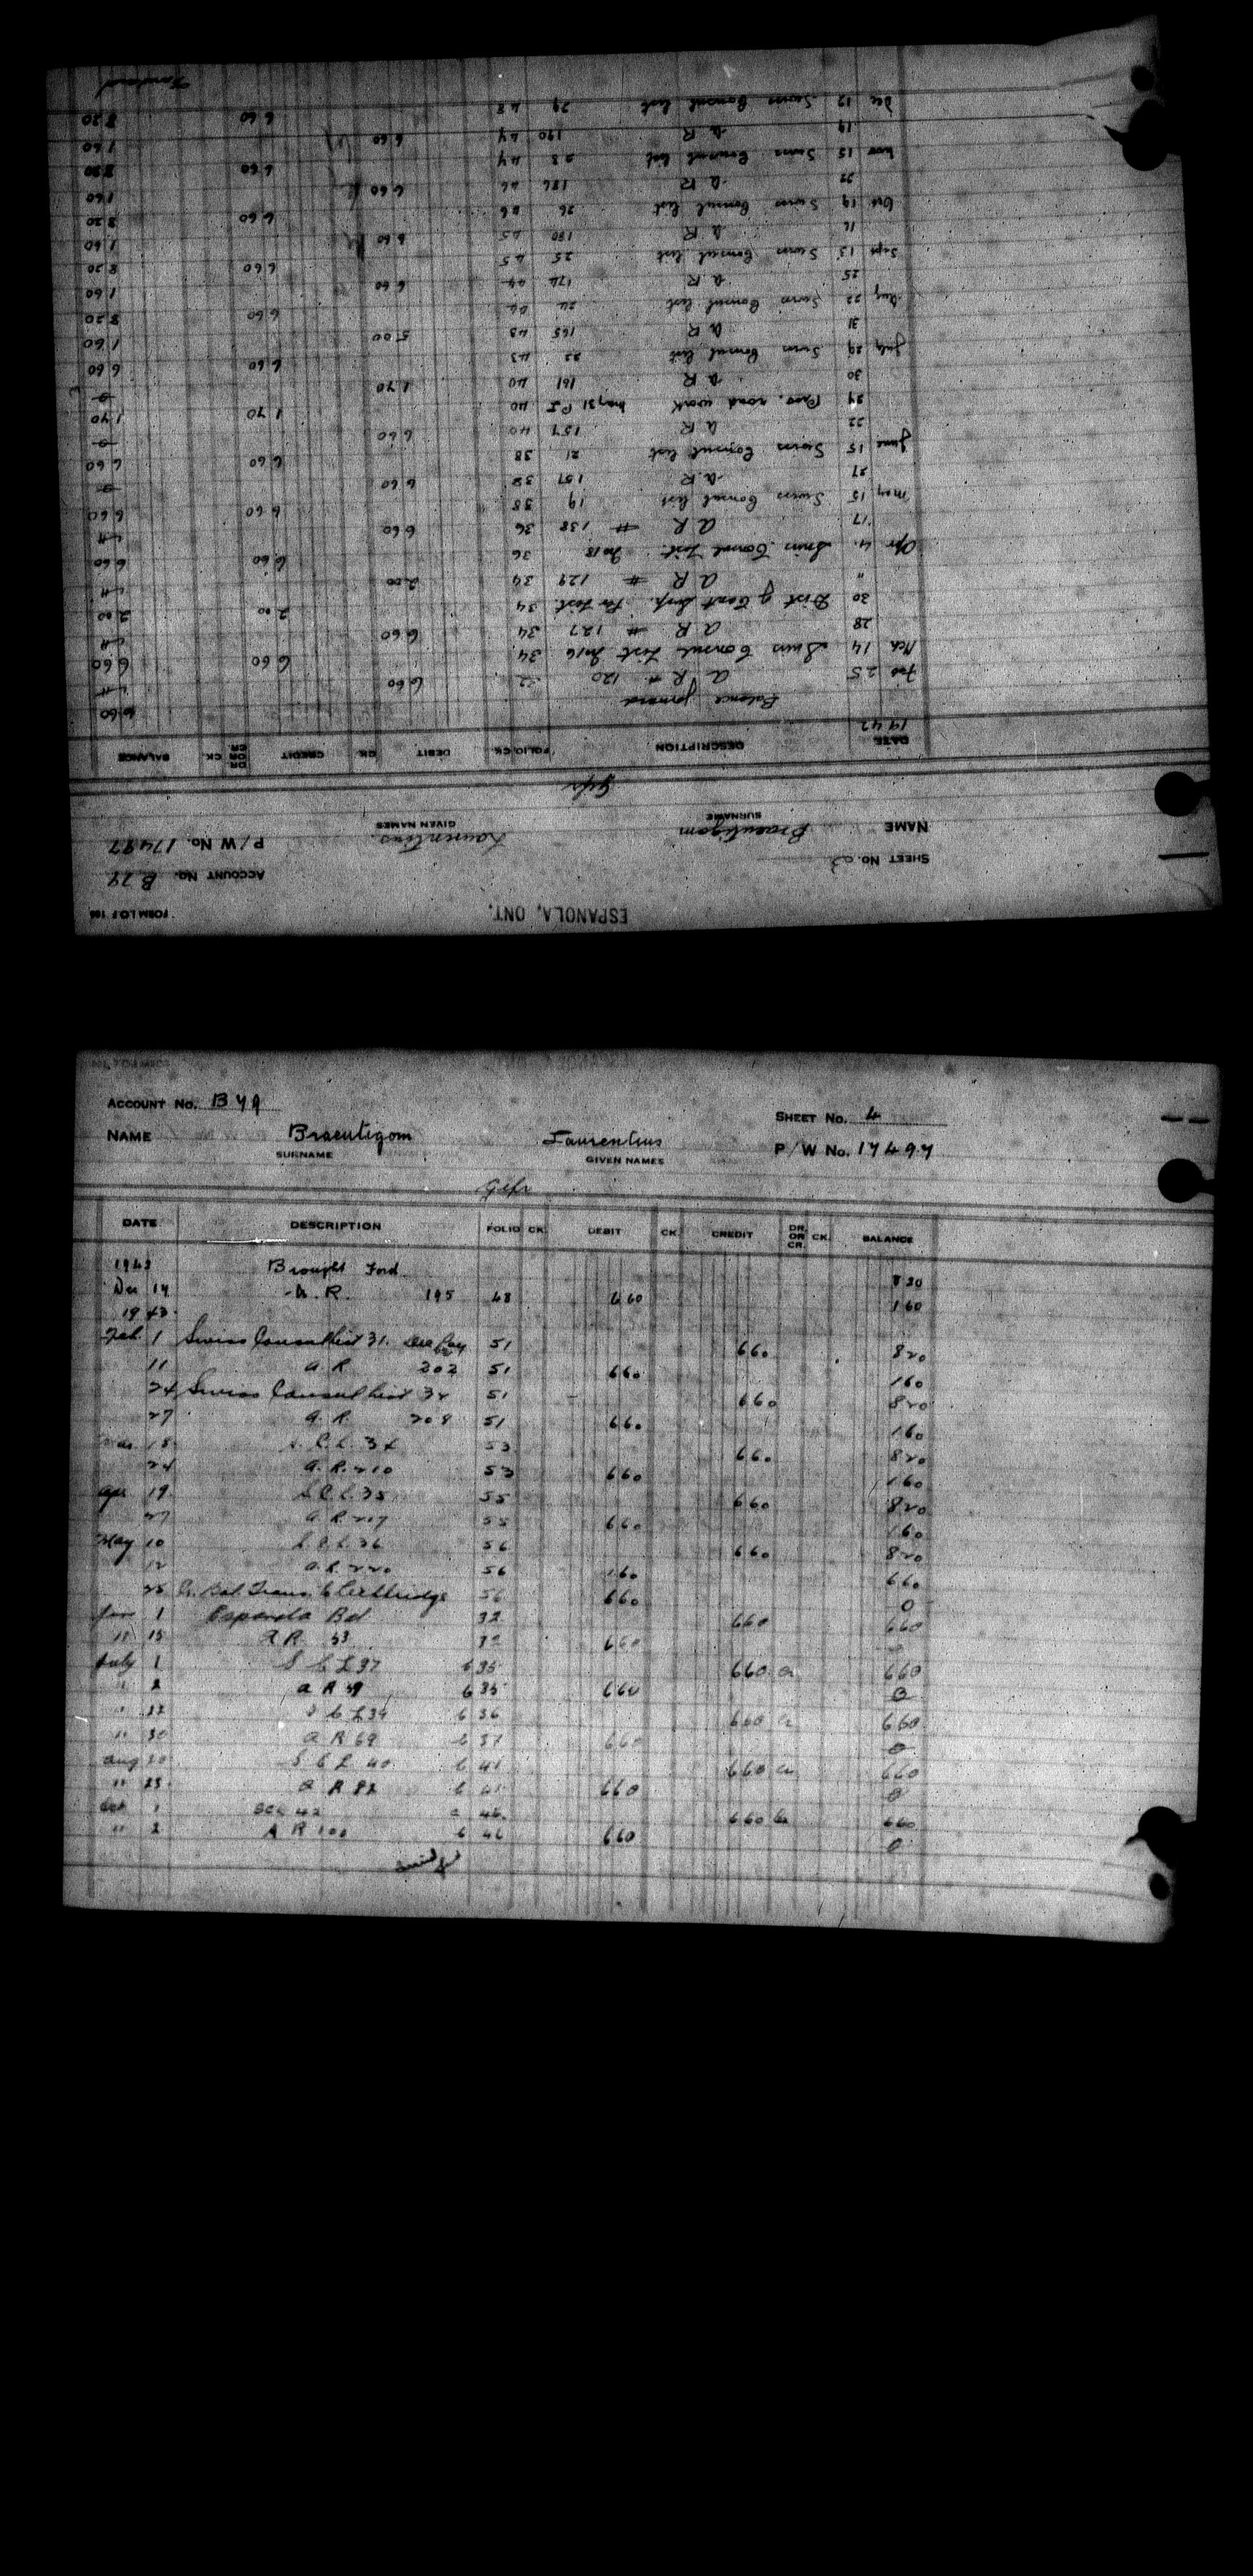 FORM I.O.F 166
ESPANOLA, ONT.
SHEET No. 3 ACCOUNT No. B 79
NAME Braeutigom Laurentius P/W No. 17497
SURNAME GIVEN NAMES
Gefr
DATE DESCRIPTION FOLIO CK. DEBIT CK. CREDIT DR. OR CR. CK. BALANCE
1942
Balance forward 6 60
Feb 25 A R # 120 6 60
Mch 14 Swiss Consul List No 16 34 6 60 6 60
28 A R # 127 34 6 60
30 Dist of Cant 34 2 00 2 00
" A R # 129 34 2 00
Apr 4 Swiss Consul List No 18 36 6 60 6 60
17 A R # 138 36 6 60
May 15 Swiss Consul list 19 38 6 60 6 60
27 A.R 38 6 60
June 15 Swiss Consul list 21 38 6 60 6 60
22 A R 157 40 6 60
29 Pros. road work May 31 P I 40 1 70 1 70
30 A R 161 40 1 70
July 29 Swiss Consul list 22 43 6 60 6 60
31 A R 165 43 5 00 1 60
Aug 22 Swiss Consul list 24 44 6 60 8 20
25 A R 174 44 6 60 1 60
Sept 15 Swiss Consul list 25 45 6 60 8 20
16 A R 180 45 6 60 1 60
Oct 19 Swiss Consul list 26 46 6 60 8 20
22 A R 186 46 6 60 1 60
Nov 15 Swiss Consul list 28 47 6 60 8 20
19 A R 190 47 6 60 1 60
Dec 12 Swiss Consul list 29 48 6 60 8 20
Forward
ACCOUNT No. B 79 SHEET No. 4
NAME Braeutigom Laurentius P/W No. 17497
SURNAME GIVEN NAMES
Gefr
DATE DESCRIPTION FOLIO CK. DEBIT CK. CREDIT DR. OR CR. CK. BALANCE
1942 Brought Ford. 8 20
Dec 14 A.R. 195 48 6 60 1 60
1943
Feb. 1 Swiss Consul list 31. Dec Pay 51 6 60 8 20
11 A R 202 51 6 60 1 60
24 Swiss Consul list 32 51 6 60 8 20
27 A. R. 208 51 6 60 1 60
Mar. 18 S. C. L. 34 53 6 60 8 20
24 A. R. 210 53 6 60 1 60
Apr 19. S.C.L. 35 55 6 60 8 20
27 A. R. 217 55 6 60 1 60
May 10 S.C.L. 36 56 6 60 8 20
12 A.R. 220 56 1 60 6 60
25 Cr. Bal. Trans. to Lethbridge 56 6 60 0
Jun 1 Espanola Bal 32 6 60 6 60
" 15 A R 53 32 6 60
July 1 S C L 37 6 35 6 60 Cr 6 60
" 2 A R 59 6 35 6 60 0
" 22 S C L 39 6 36 6 60 Cr 6 60
" 30 A R 69 6 37 6 60 0
Aug 20 S C L 40 6 41 6 60 Cr 6 60
" 23 A R 82 6 41 6 60 0
Oct 1 SCL 42 46 6 60 Cr 6 60
" 2 A R 100 6 46 6 60 0